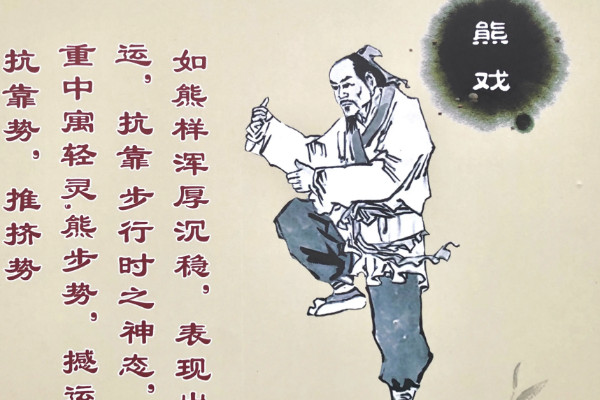 熊戏
如熊样浑厚沉稳，表现出
运，抗靠步行时之神态，
重中寓轻灵.熊步势，撼运
抗靠势，推挤势